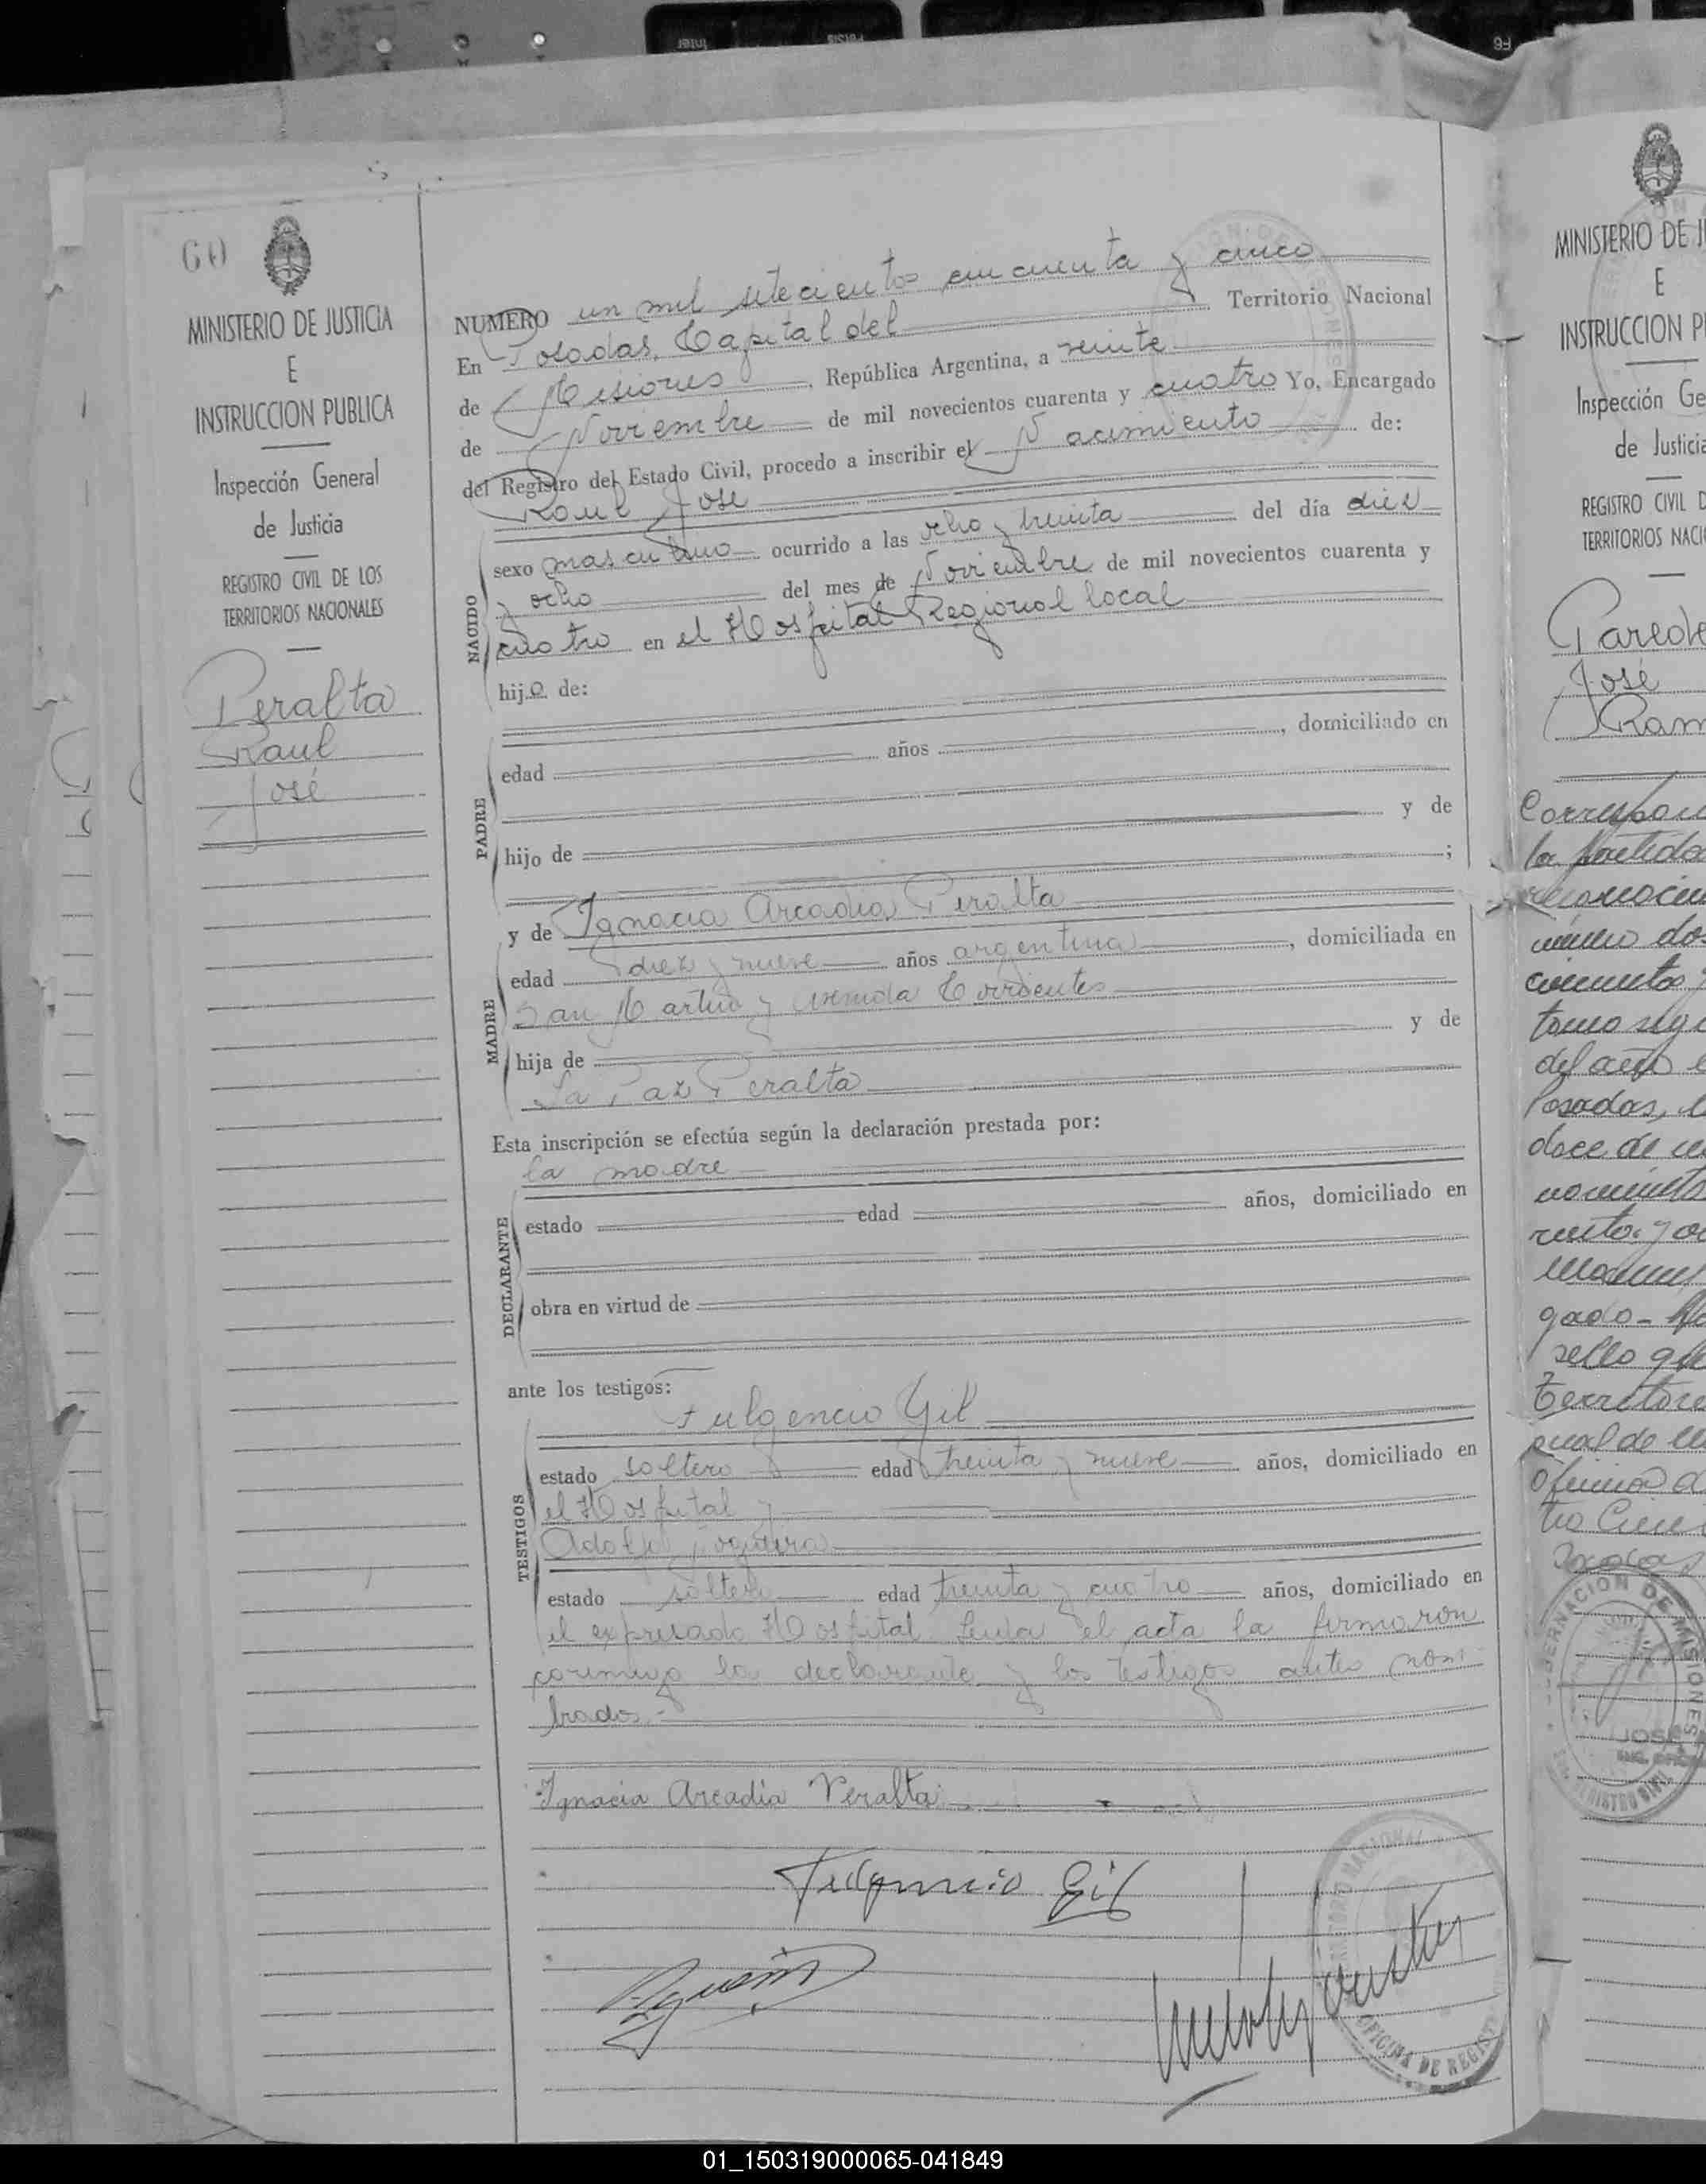 60
MINISTERIO DE JUSTICIA
E
INSTRUCCION PUBLICA
Inspección General
de Justicia
REGISTRO CIVIL DE LOS
TERRITORIOS NACIONALES
Peralta
Raul
José
NUMERO un mil setecientos cincuenta y cinco
En Posadas, Capital del Territorio Nacional
de Misiones, República Argentina, a veinte
de Noviembre de mil novecientos cuarenta y cuatro Yo, Encargado
del Registro del Estado Civil, procedo a inscribir el Nacimiento de:
Raul Jose
NACIDO
sexo masculino ocurrido a las ocho y treinta del día diez
y ocho del mes de Noviembre de mil novecientos cuarenta y
cuatro en el Hospital Regional local
hijo de:
PADRE
edad años , domiciliado en
hijo de y de
;
MADRE
y de Ignacia Arcadia Peralta
edad diez y nueve años argentina , domiciliada en
San Martin y avenida Corrientes
hija de y de
La Paz Peralta
Esta inscripción se efectúa según la declaración prestada por:
la madre
DECLARANTE
estado edad años, domiciliado en
obra en virtud de
ante los testigos:
TESTIGOS
Fulgencio Gil
estado soltero edad treinta y nueve años, domiciliado en
el Hospital y
Adolfo
estado soltero edad treinta y cuatro años, domiciliado en
el expresado Hospital. Leida el acta la firmaron
conmigo la declarante y los testigos antes nom
brados.-
Ignacia Arcadia Peralta
Fulgencio Gil
OFICINA DE REGIST
MINISTERIO DE JU
E
INSTRUCCION PU
Inspección Ge
de Justicia
REGISTRO CIVIL D
TERRITORIOS NACI
Parede
José
Ram
la partida
Posadas,
doce de
sello que
Territorio
GOBERNACION DE MISIONES
JOSE
01_150319000065-041849